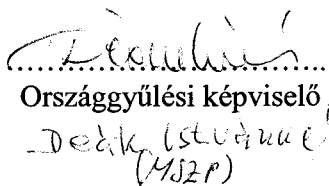 Országgyűlési képviselő
Deák Istvánné
(MSZP)